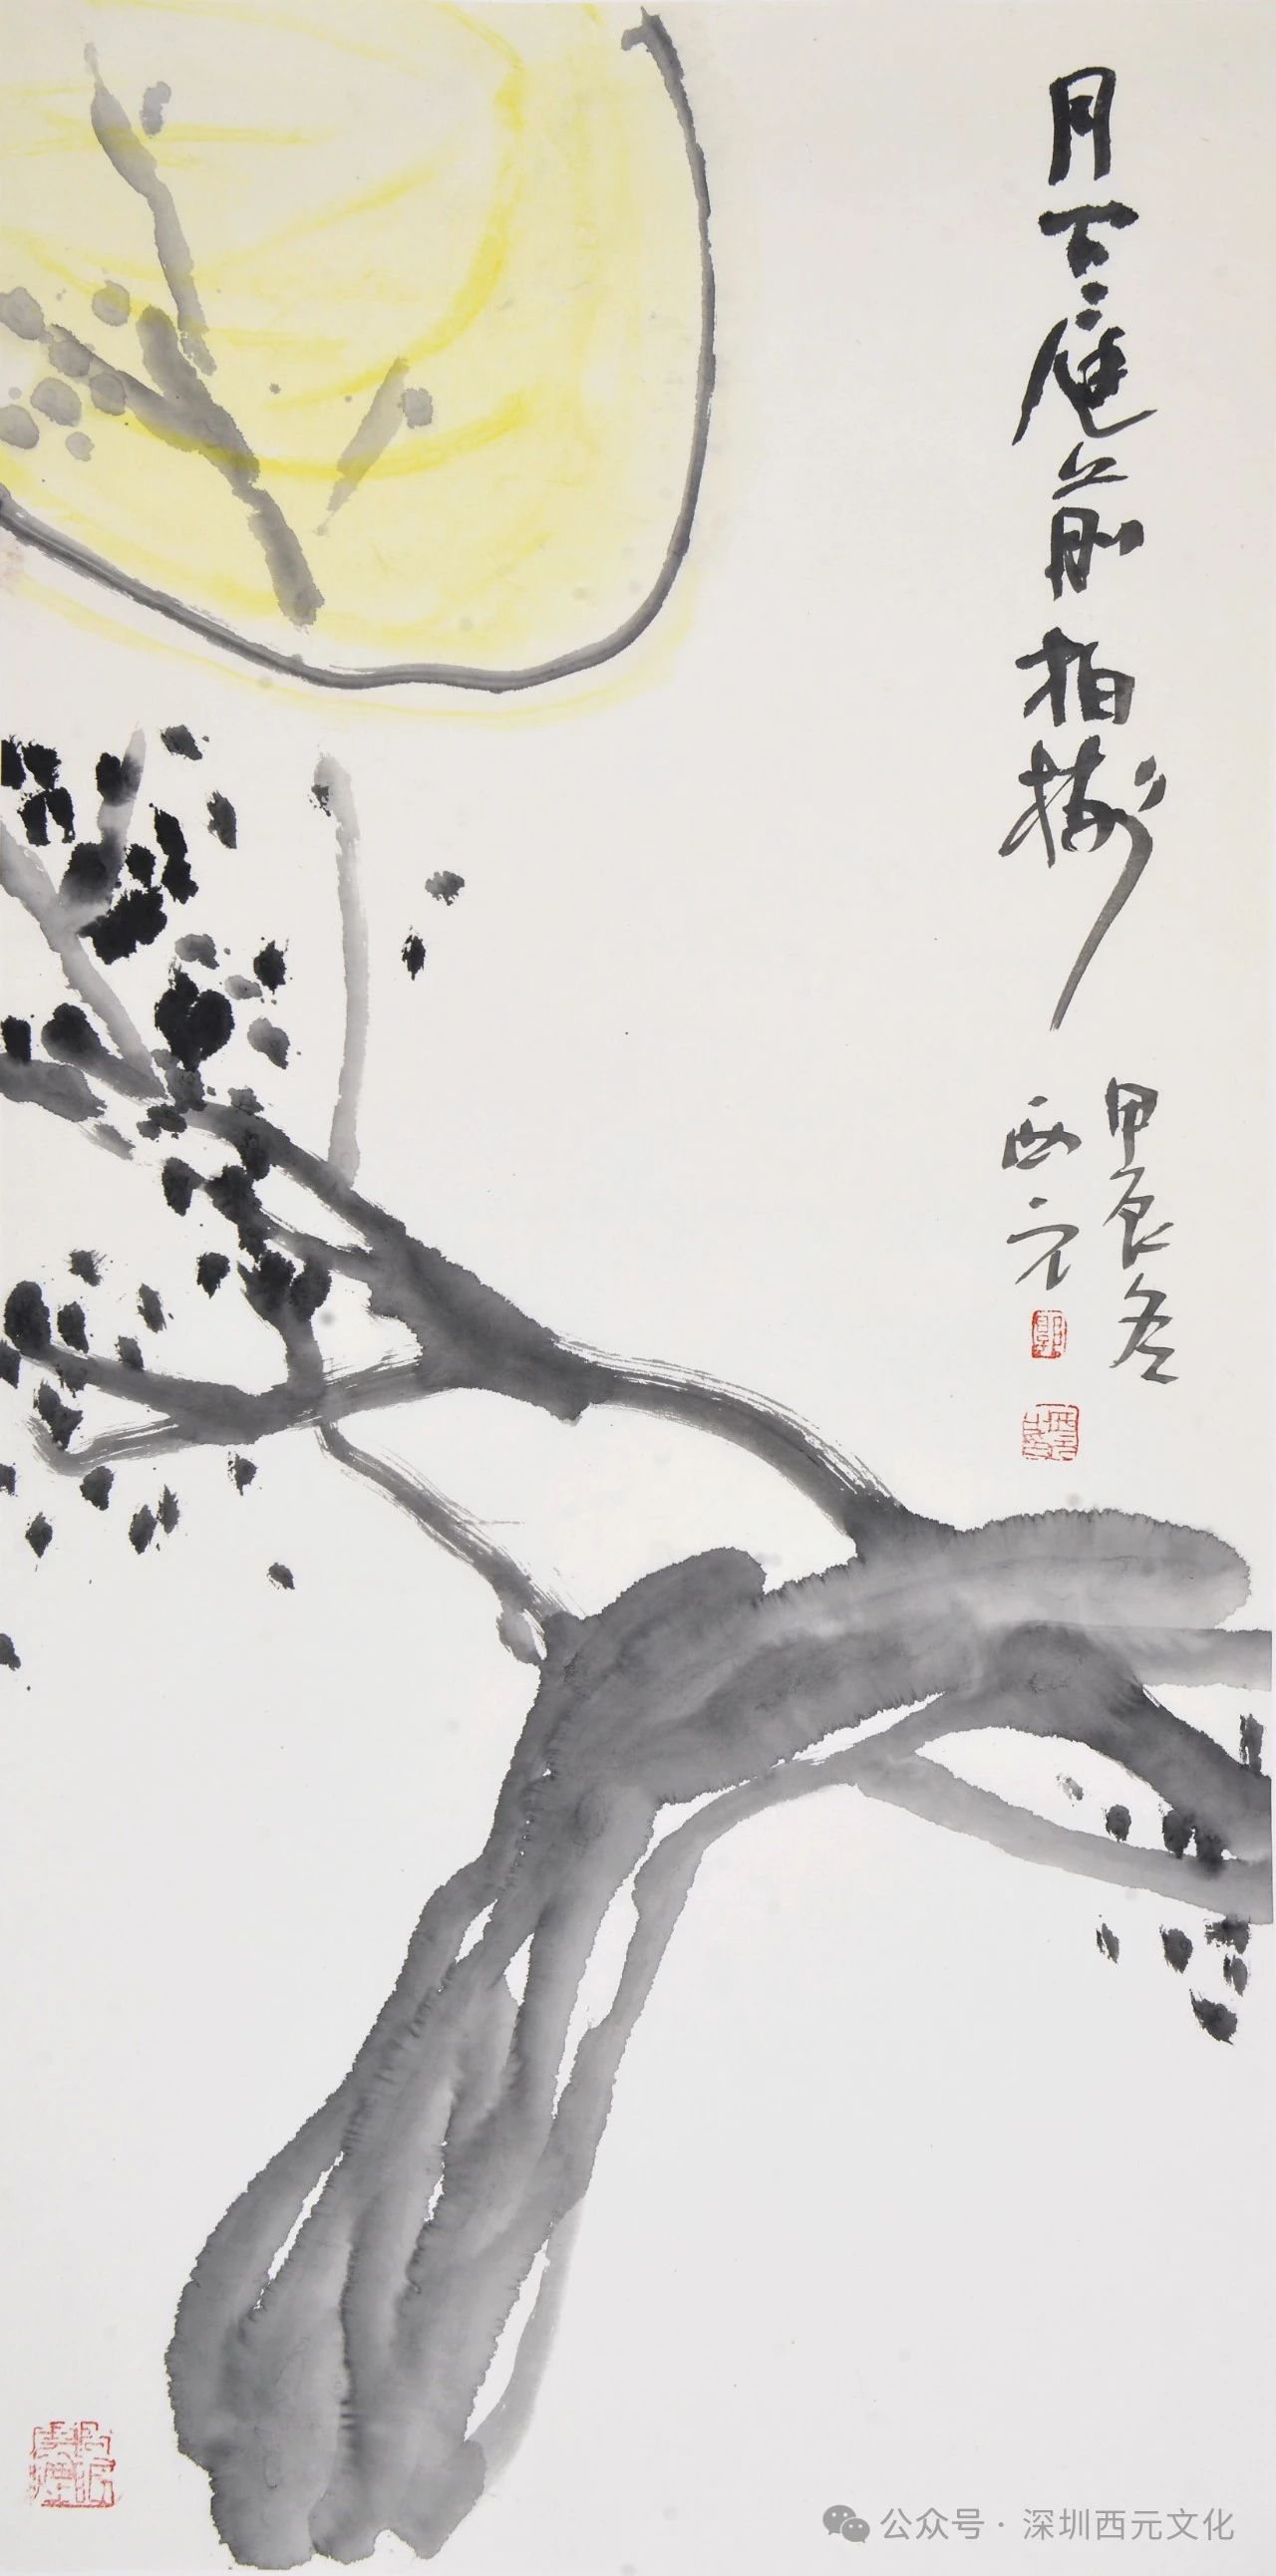 月下庭前柏樹
甲辰冬
西元
公众号·深圳西元文化